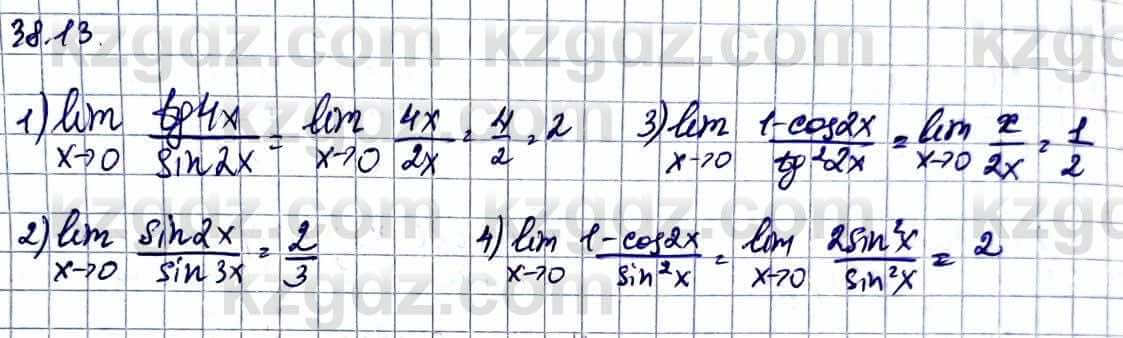 38.13.
kzgdz.com kzgdz.com kzgdz.com
1) lim x→0 tg4x/sin2x = lim x→0 4x/2x = 4/2 = 2 3) lim x→0 1-cos2x/tg²2x = lim x→0 x/2x = 1/2
2) lim x→0 sin2x/sin3x = 2/3 4) lim x→0 1-cos2x/sin²x = lim x→0 2sin²x/sin²x = 2
kzgdz.com kzgdz.com